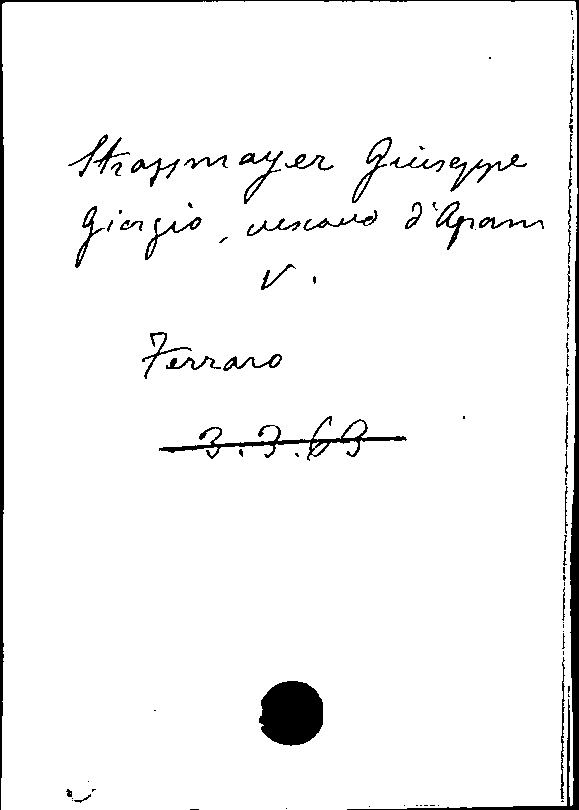 Strassmayer Giuseppe
Giorgio, vescovo d'Apam
V.
Ferraro
3.3.63